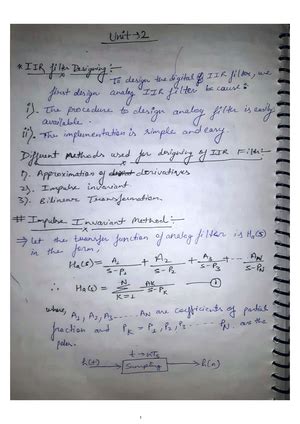 Unit → 2
* IIR filter Designing:-
To design the digital IIR filter, we
first design analog IIR filter because:
i). The procedure to design analog filter is easily
available.
ii). The implementation is simple and easy.
Different Methods used for designing of IIR Filter:-
1). Approximation of derivatives
2). Impulse invariant
3). Bilinear Transformation.
# Impulse Invariant Method:-
⇒ let the transfer function of analog filter is Ha(s)
in the form,
Ha(s) = A1/(s-P1) + A2/(s-P2) + A3/(s-P3) + ---- AN/(s-PN)
∴ Ha(s) = N Σ K=1 AK/(s-PK) —— ①
where, A1, A2, A3 ..... AN are coefficients of partial
fraction and PK = P1, P2, P3 ..... PN. are the
poles.
t → nTs
h(t) → Sampling → h(n)